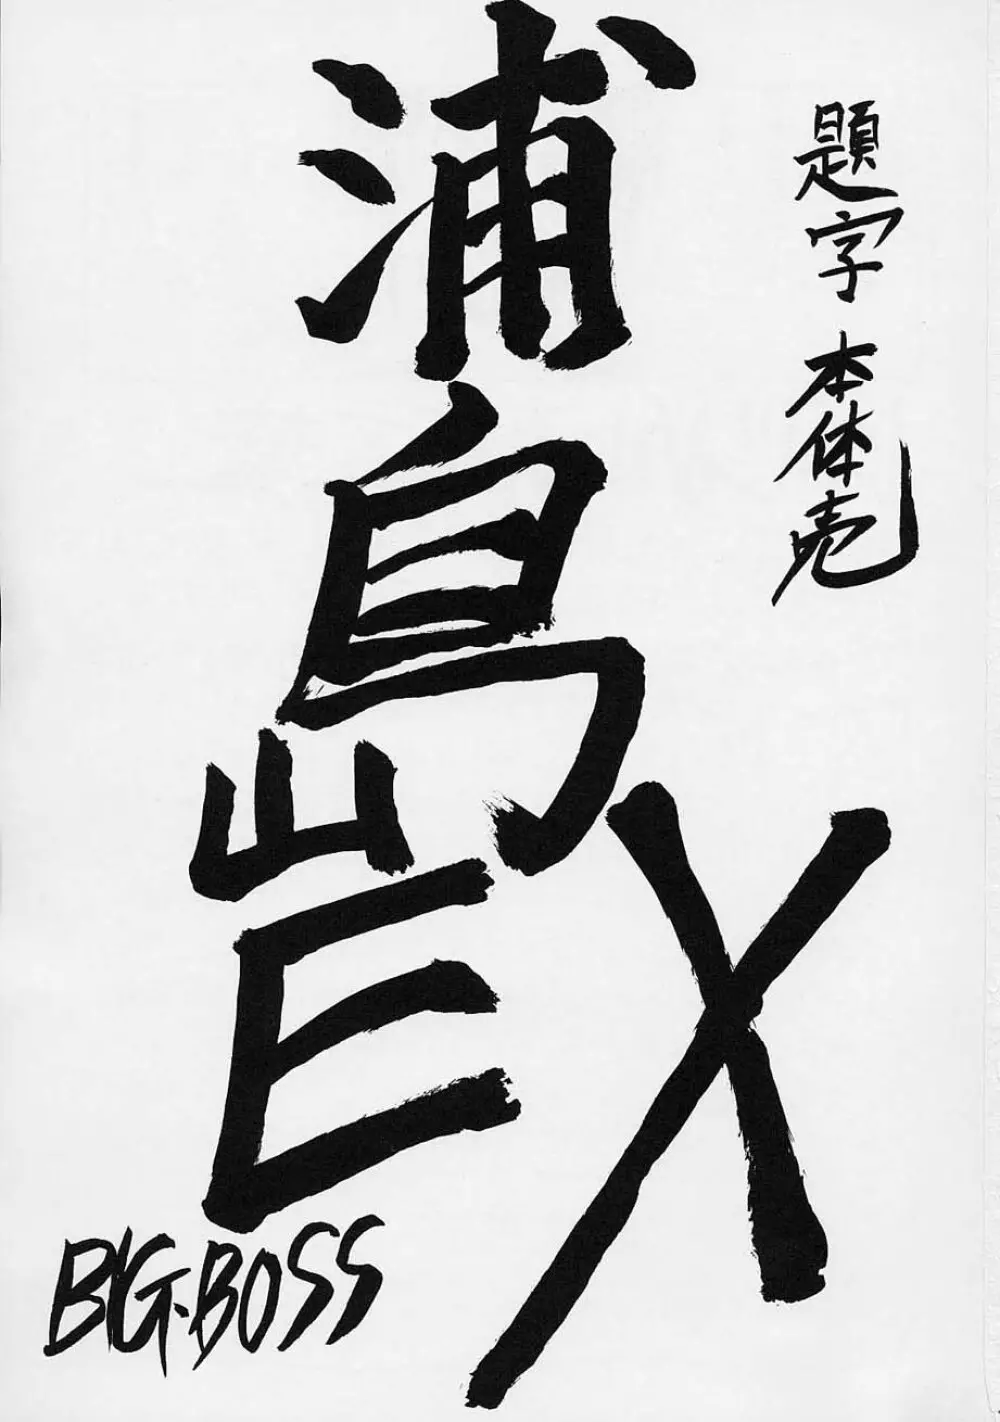 題字 本体売
浦嶋EX
BIG-BOSS